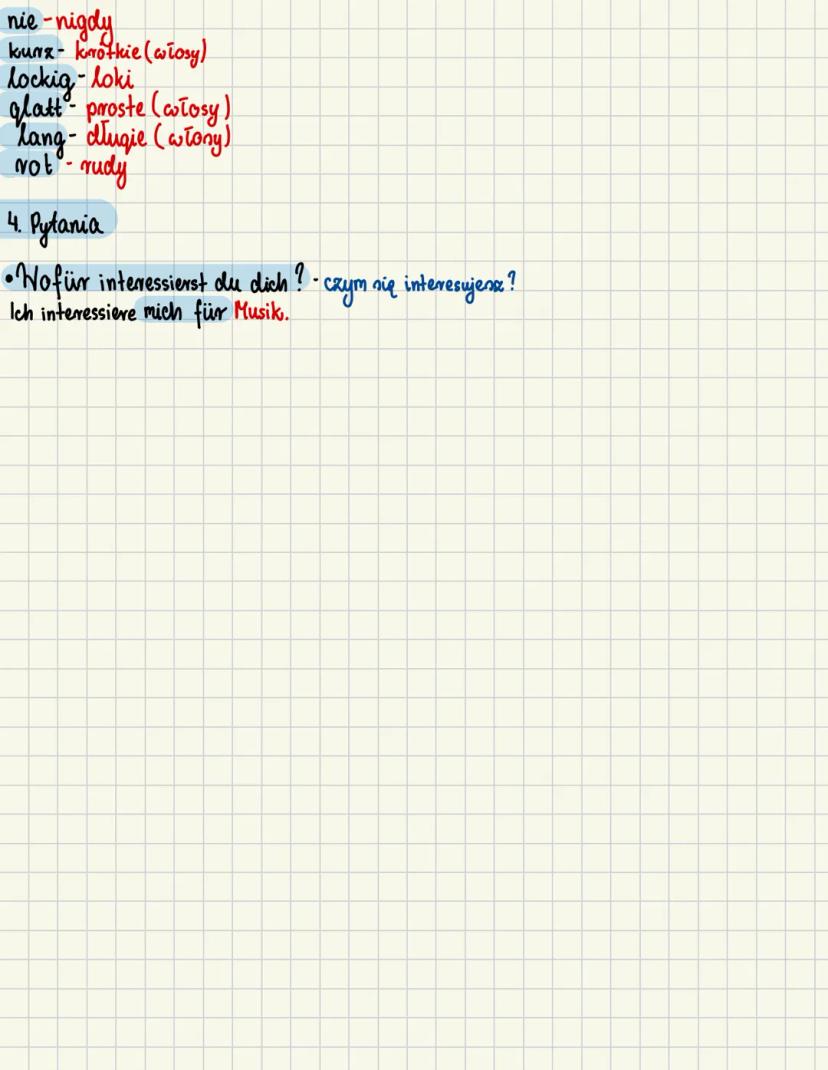 nie - nigdy
kurz - krótkie (włosy)
lockig - loki
glatt - proste (włosy)
lang - długie (włosy)
rot - rudy
4. Pytania
• Wofür interessierst du dich? - czym się interesujesz?
Ich interessiere mich für Musik.